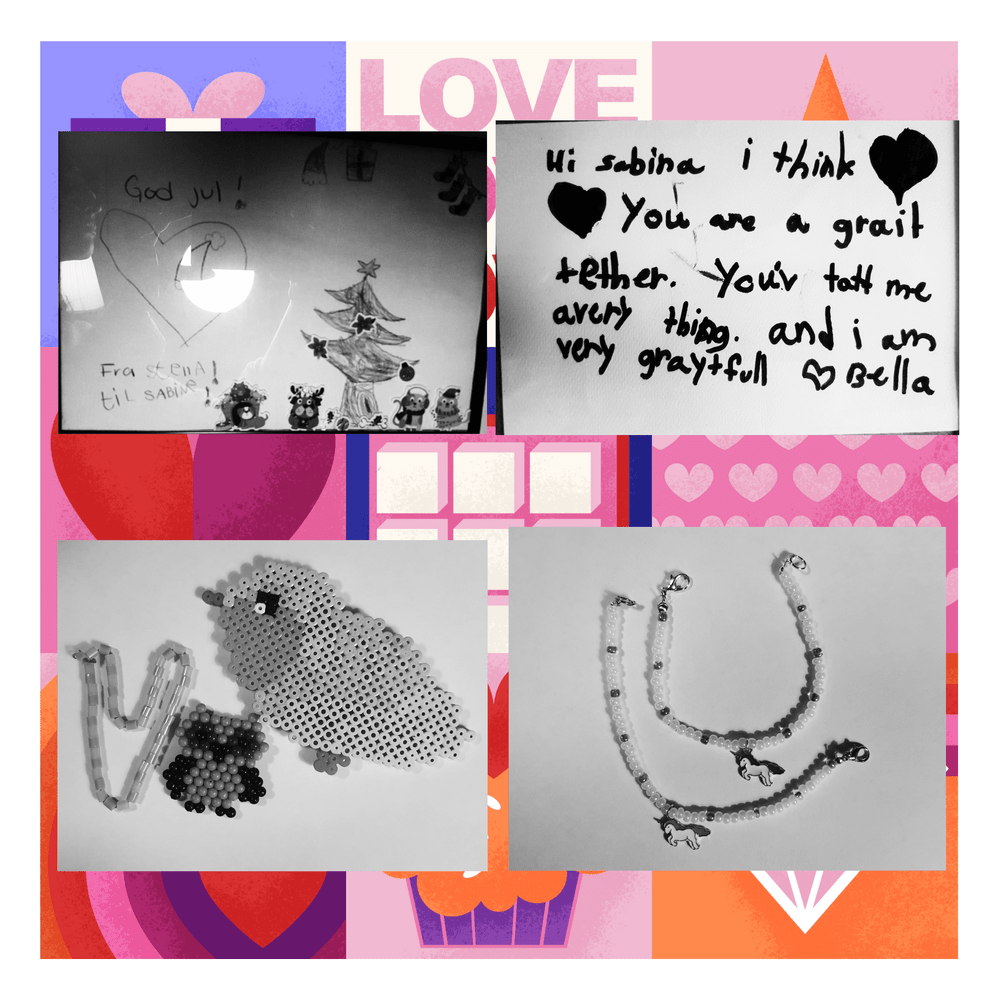 LOVE
God jul!
Fra stenA!
til SABINE!
Hi sabina i think
You are a grait
tether. You'v tatt me
avery thing. and i am
very graytfull ♡ Bella